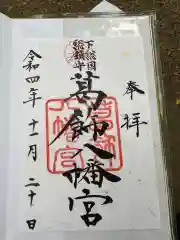 奉拝
下総国
総鎮守
葛飾八幡宮
令和四年十一月二十日